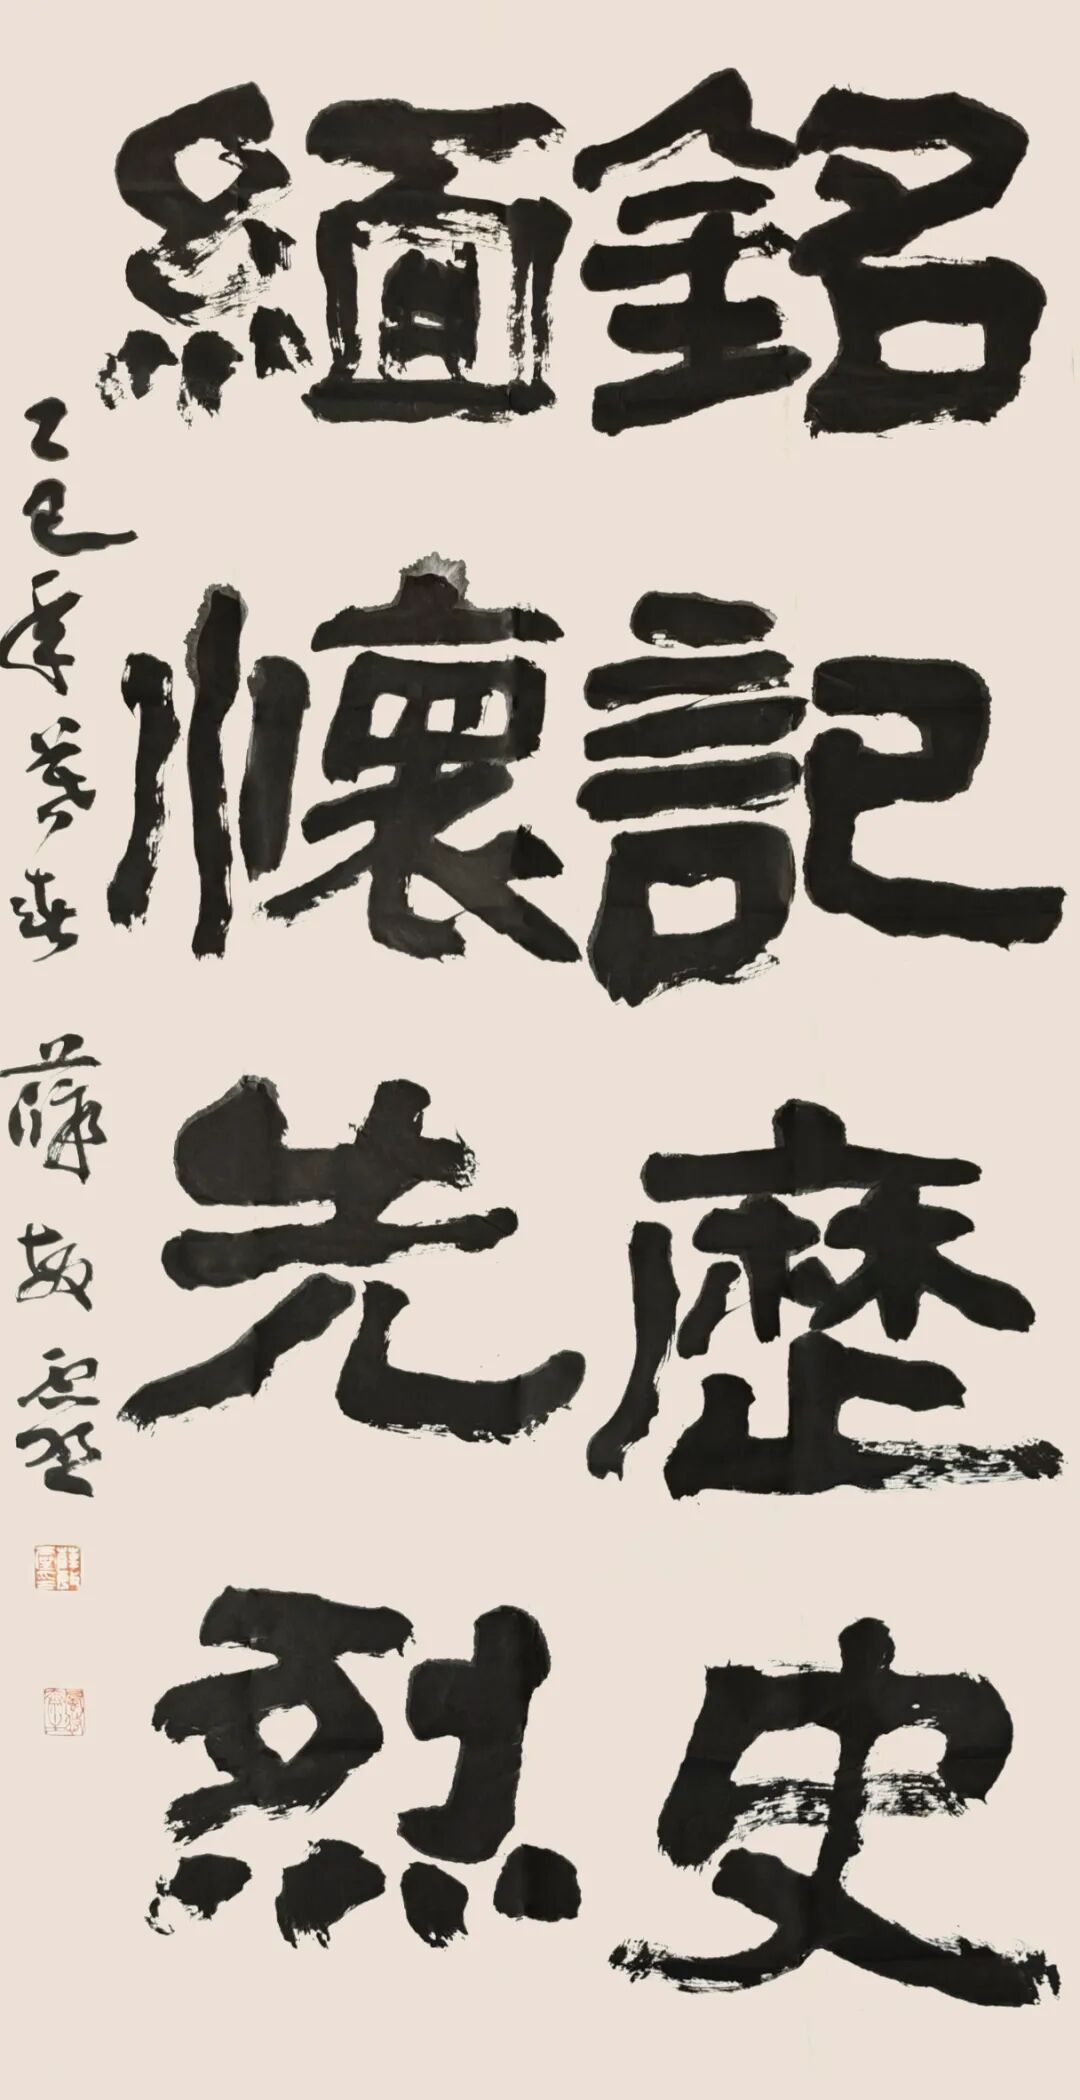 銘記歷史
緬懷先烈
乙巳年暮春 薛敏